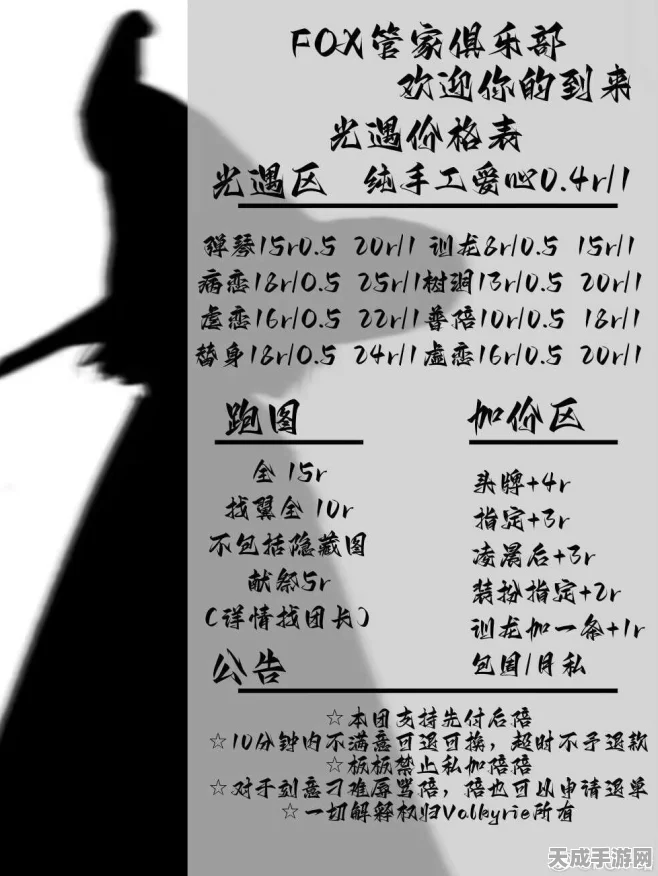 FOX管家俱乐部
欢迎你的到来
光遇价格表
光遇区 纯手工爱心0.4r/1
弹琴15r0.5 20r/1 训龙8r/0.5 15r/1
病恋18r/0.5 25r/1树洞13r/0.5 20r/1
虚恋16r/0.5 22r/1普陪10r/0.5 18r/1
替身18r/0.5 24r/1虚恋16r/0.5 20r/1
跑图
全 15r
找翼全 10r
不包括隐藏图
献祭5r
(详情找团长)
加价区
头牌+4r
指定+3r
凌晨后+3r
装扮指定+2r
训龙加一条+1r
包周/月私
公告
☆本团支持先付后陪
☆10分钟内不满意可退可换，超时不予退款
☆板板禁止私加陪陪
☆对于刻意刁难辱骂陪，陪也可以申请退单
☆一切解释权归Valkyrie所有
天成手游网